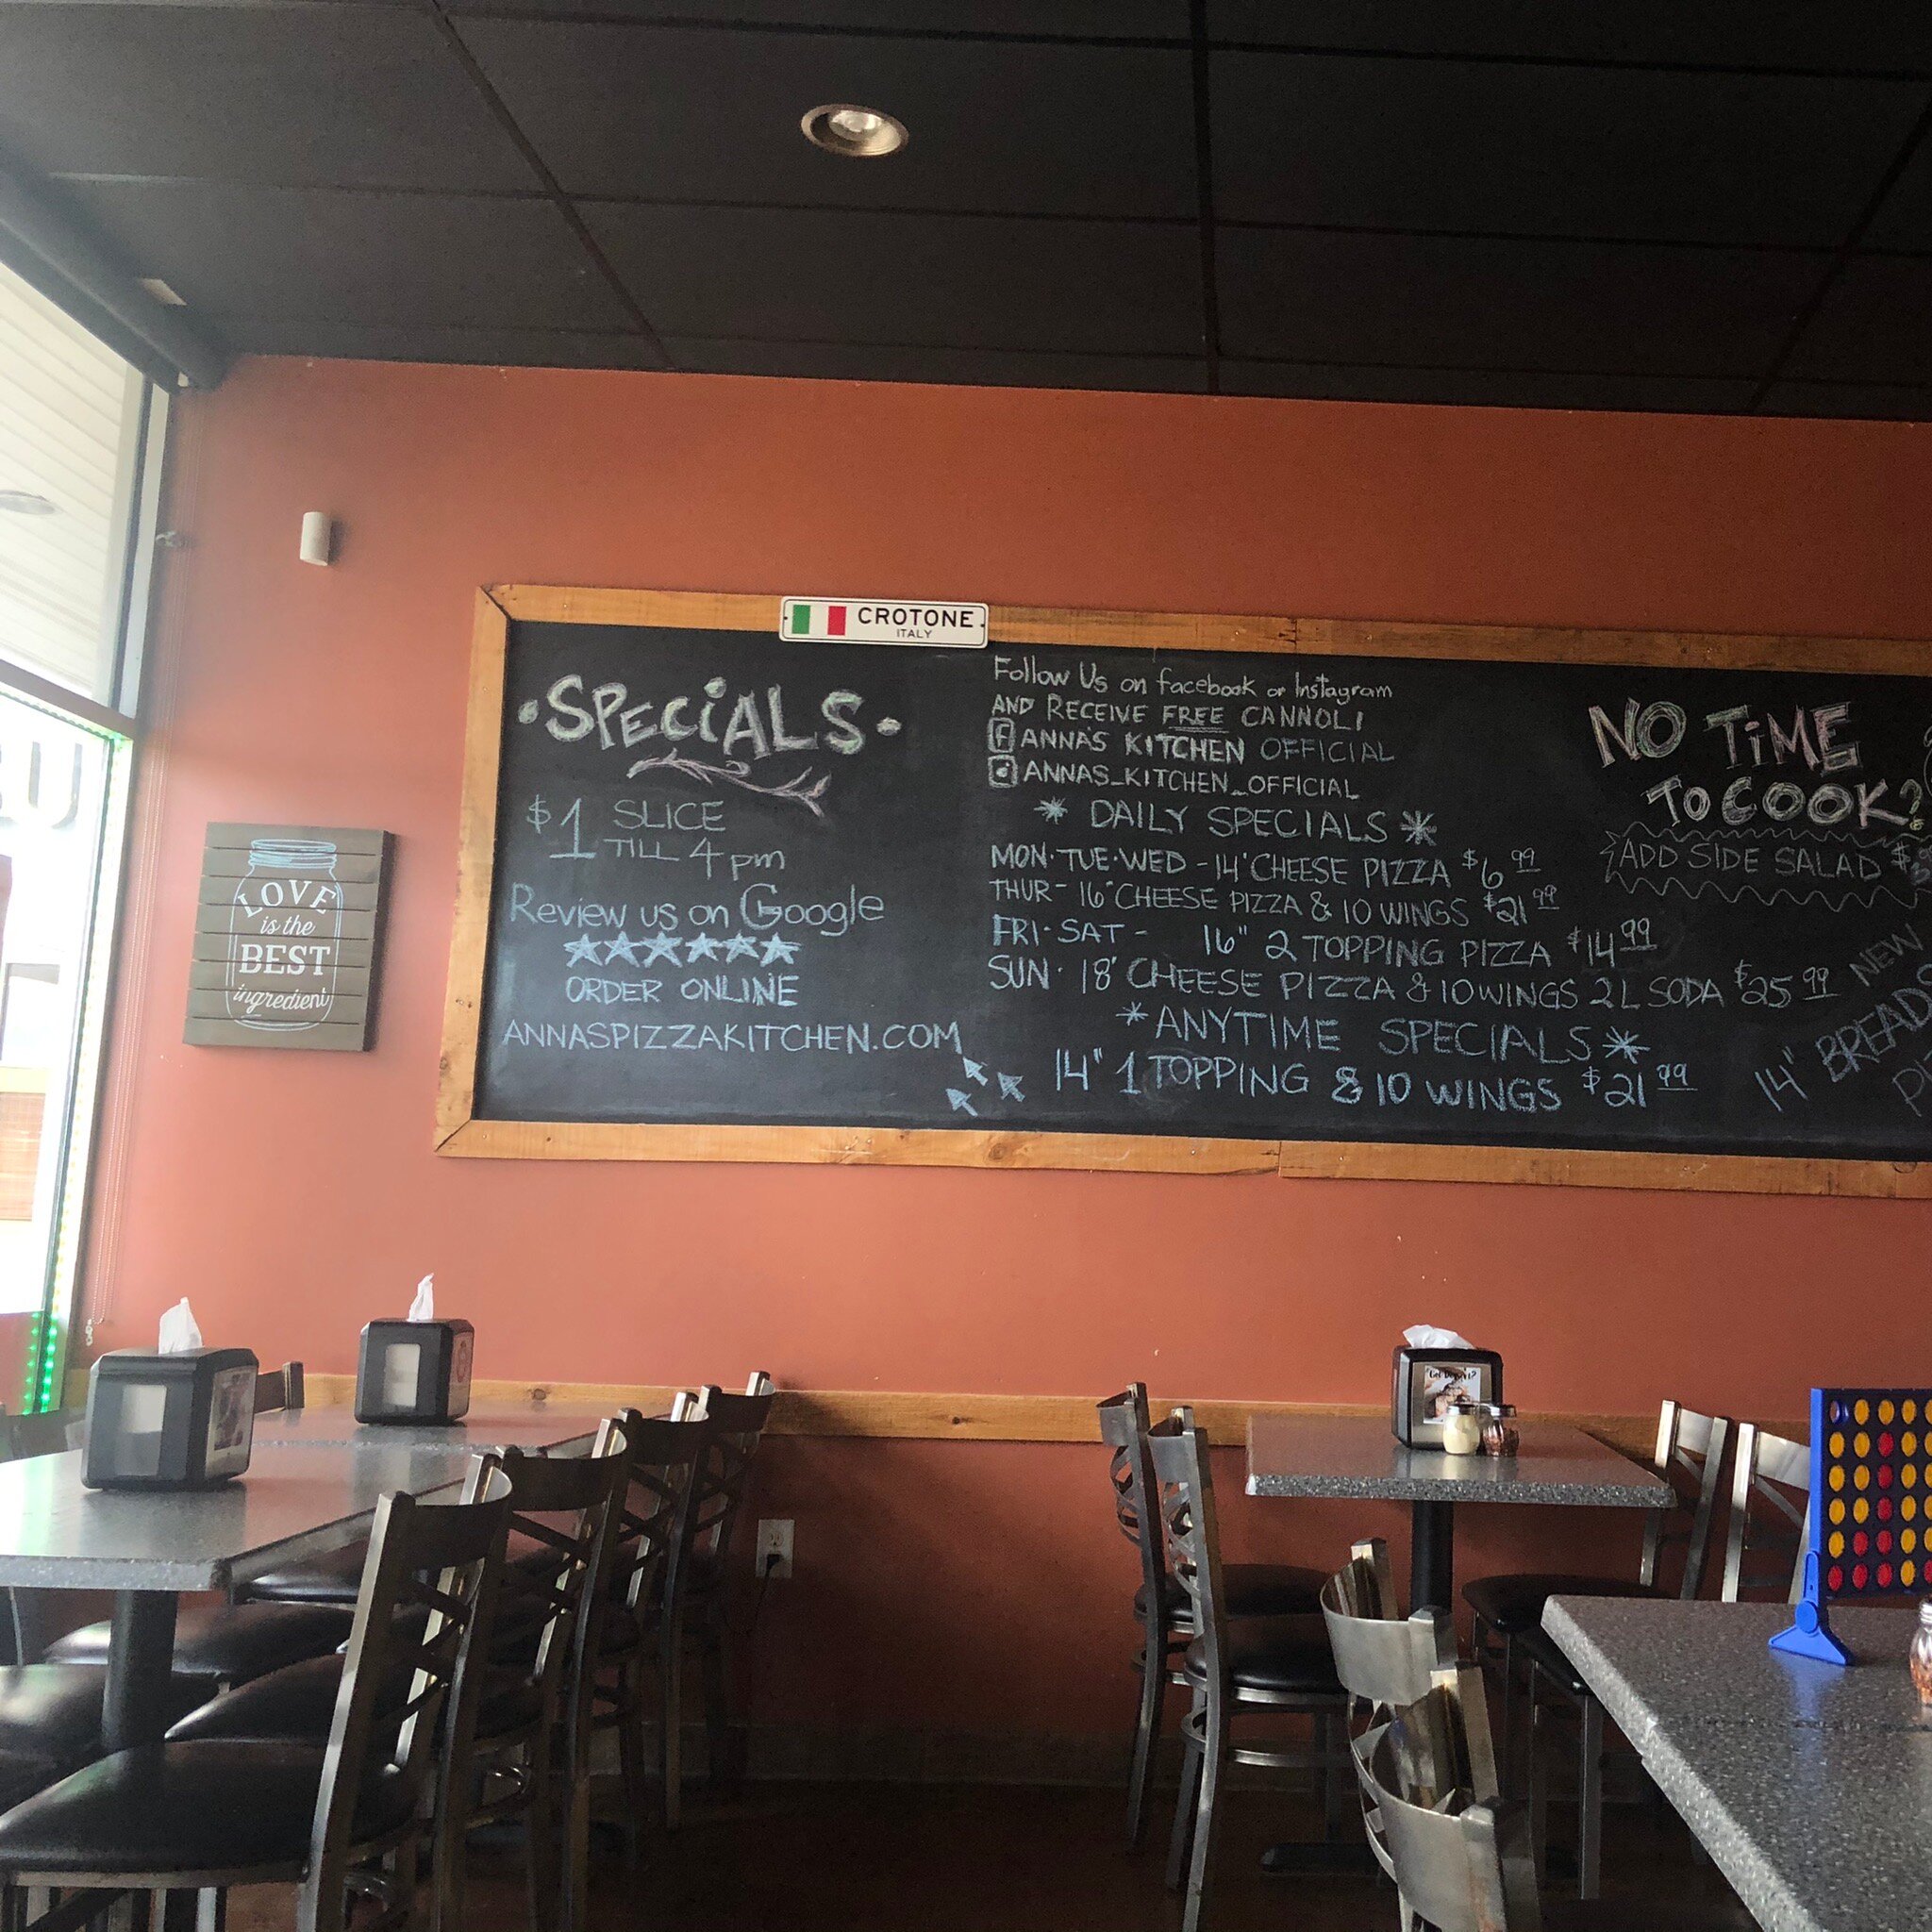 CROTONE
ITALY
•SPECiALS•
$1 SLICE
TILL 4pm
Review us on Google
ORDER ONLINE
ANNASPIZZAKITCHEN.COM
Follow Us on facebook or Instagram
AND RECEIVE FREE CANNOLI
ANNA'S KITCHEN OFFICIAL
ANNAS_KITCHEN_OFFICIAL
* DAILY SPECIALS *
MON·TUE·WED - 14" CHEESE PIZZA $6.99
THUR - 16" CHEESE PIZZA & 10 WINGS $21.99
FRI·SAT - 16" 2 TOPPING PIZZA $14.99
SUN· 18" CHEESE PIZZA & 10 WINGS 2L SODA $25.99
*ANYTIME SPECIALS*
14" 1 TOPPING & 10 WINGS $21.99
NO TiME
To COOK?
ADD SIDE SALAD $
NEW
14"
LOVE
is the
BEST
ingredient